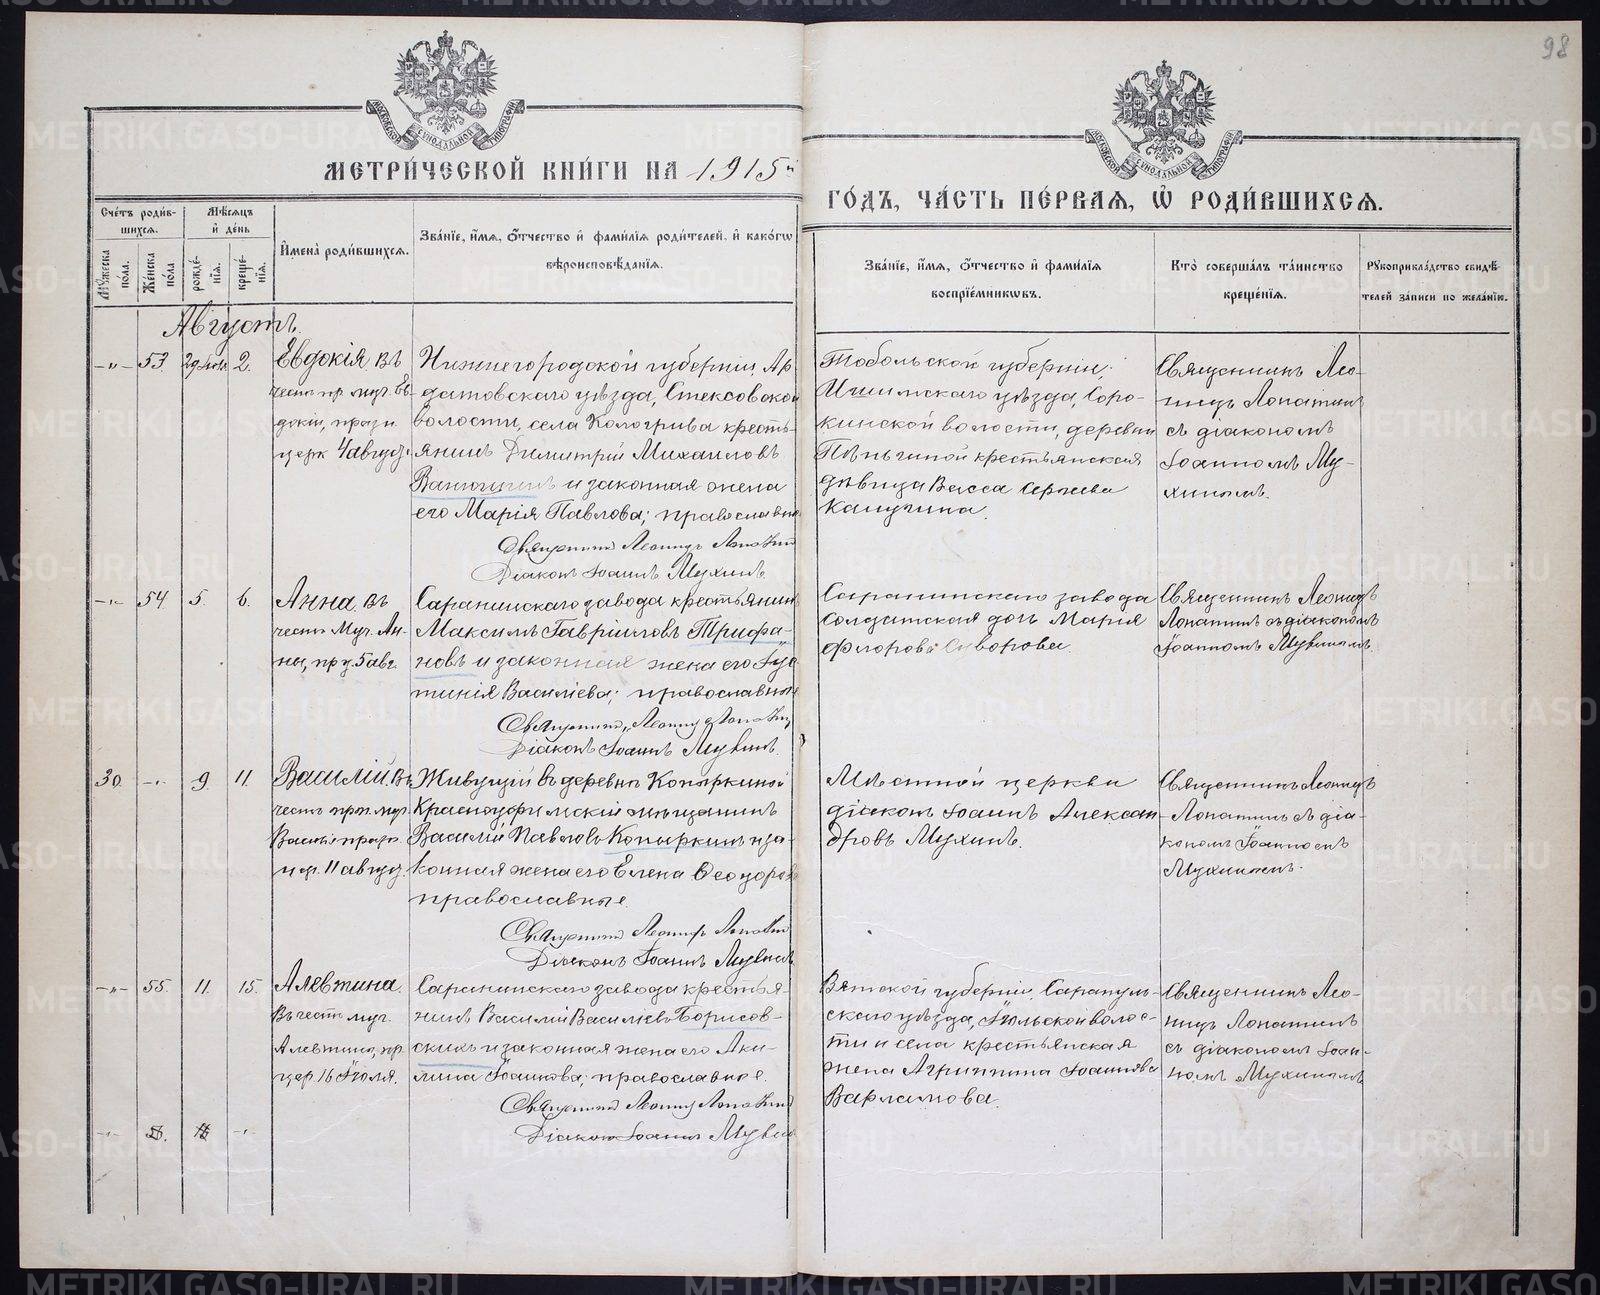 98
МОСКОВСКОЙ СѴНОДАЛЬНОЙ ТИПОГРАФІИ
МОСКОВСКОЙ СѴНОДАЛЬНОЙ ТИПОГРАФІИ
МЕТРИ́ЧЕСКОЙ КНИ́ГИ НА 1915й
ГО́ДЪ, ЧА́СТЬ ПЕ́РВАѦ, Ѡ҆ РОДИ́ВШИХСѦ.
Сче́тъ роди́в-
шихсѧ.
Мѣ́сѧцъ
и҆ де́нь
И҆мена̀ роди́вшихсѧ.
Зва́нїе, и҆́мѧ, ѻ҆́тчество и҆ фами́лїѧ роди́телей, и҆ како́гѡ
вѣроисповѣ́данїѧ.
Мꙋ́жеска
по́ла.
Же́нска
по́ла
рожде́-
нїѧ.
креще́-
нїѧ.
Зва́нїе, и҆́мѧ, ѻ҆́тчество и҆ фами́лїѧ
воспрїе́мникѡвъ.
Кто̀ соверша́лъ та́инство
креще́нїѧ.
Рꙋкоприкла́дство свидѣ́-
телей за́писи по жела́нїю.
Августъ.
-"- 53 29 Іюля 2.
Евдокія. въ
честь пр. муч. Ев-
докіи, празд.
церк 4 август.
Нижнегородской губерніи, Ар
датовскаго уѣзда, Стексовской
волости, села Кологрива кресть-
янинъ Димитрій Михаиловъ
Ванюшинъ и законная жена
его Марія Павлова; православные
Священникъ Леонидъ Лопатинъ
Діаконъ Іоаннъ Мухинъ.
Тобольской губерніи,
Ишимскаго уѣзда, Соро-
кинской волости, деревни
крестьянская
дѣвица Васса Сергіева
Калугина.
Священникъ Лео-
нидъ Лопатинъ
съ діакономъ
Іоанномъ Му-
хинымъ.
-"- 54 5. 6.
Анна. въ
честь Муч. Ан-
ны, пр. 5 авг.
Саранинскаго завода крестьянинъ
Максимъ Гавріиловъ Трифа-
новъ и законная жена его Іус
тинія Василіева; православные
Священникъ Леонидъ Лопатинъ
Діаконъ Іоаннъ Мухинъ.
Саранинскаго завода
солдатская дочь Марія
Флорова Суворова.
Священникъ Леонидъ
Лопатинъ съ діакономъ
Іоанномъ Мухинымъ.
30 -"- 9 11.
Василій. Въ
честь преп. муч.
Васил. празд.
ц. 11 август.
Живущій въ деревнѣ Копыркиной
Красноуфимскій мѣщанинъ
Василій Павловъ Копыркинъ и за-
конная жена его Елена Ѳеодорова
православные.
Священникъ Леонидъ Лопатинъ
Діаконъ Іоаннъ Мухинъ
Мѣстной церкви
діаконъ Іоаннъ Алексан-
дровъ Мухинъ.
Священникъ Леонидъ
Лопатинъ съ діа-
кономъ Іоанномъ
Мухинымъ.
-"- 55. 11. 15.
Алевтина.
Въ честь муч.
Алевтины, пр.
цер. 16 Іюля.
Саранинскаго завода крестья-
нинъ Василій Василіевъ Борисов-
скихъ и законная жена его Аки-
лина Іоаннова, православные.
Священникъ Леонидъ Лопатинъ
Діаконъ Іоаннъ Мухинъ
Вятской губерніи, Сарапуль-
скаго уѣзда, Іюльской волос-
ти и села крестьянская
жена Агриппина Іоаннова
Варламова.
Священникъ Лео-
нидъ Лопатинъ
съ діакономъ Іоан-
номъ Мухинымъ
METRIKI.GASO-URAL.RU